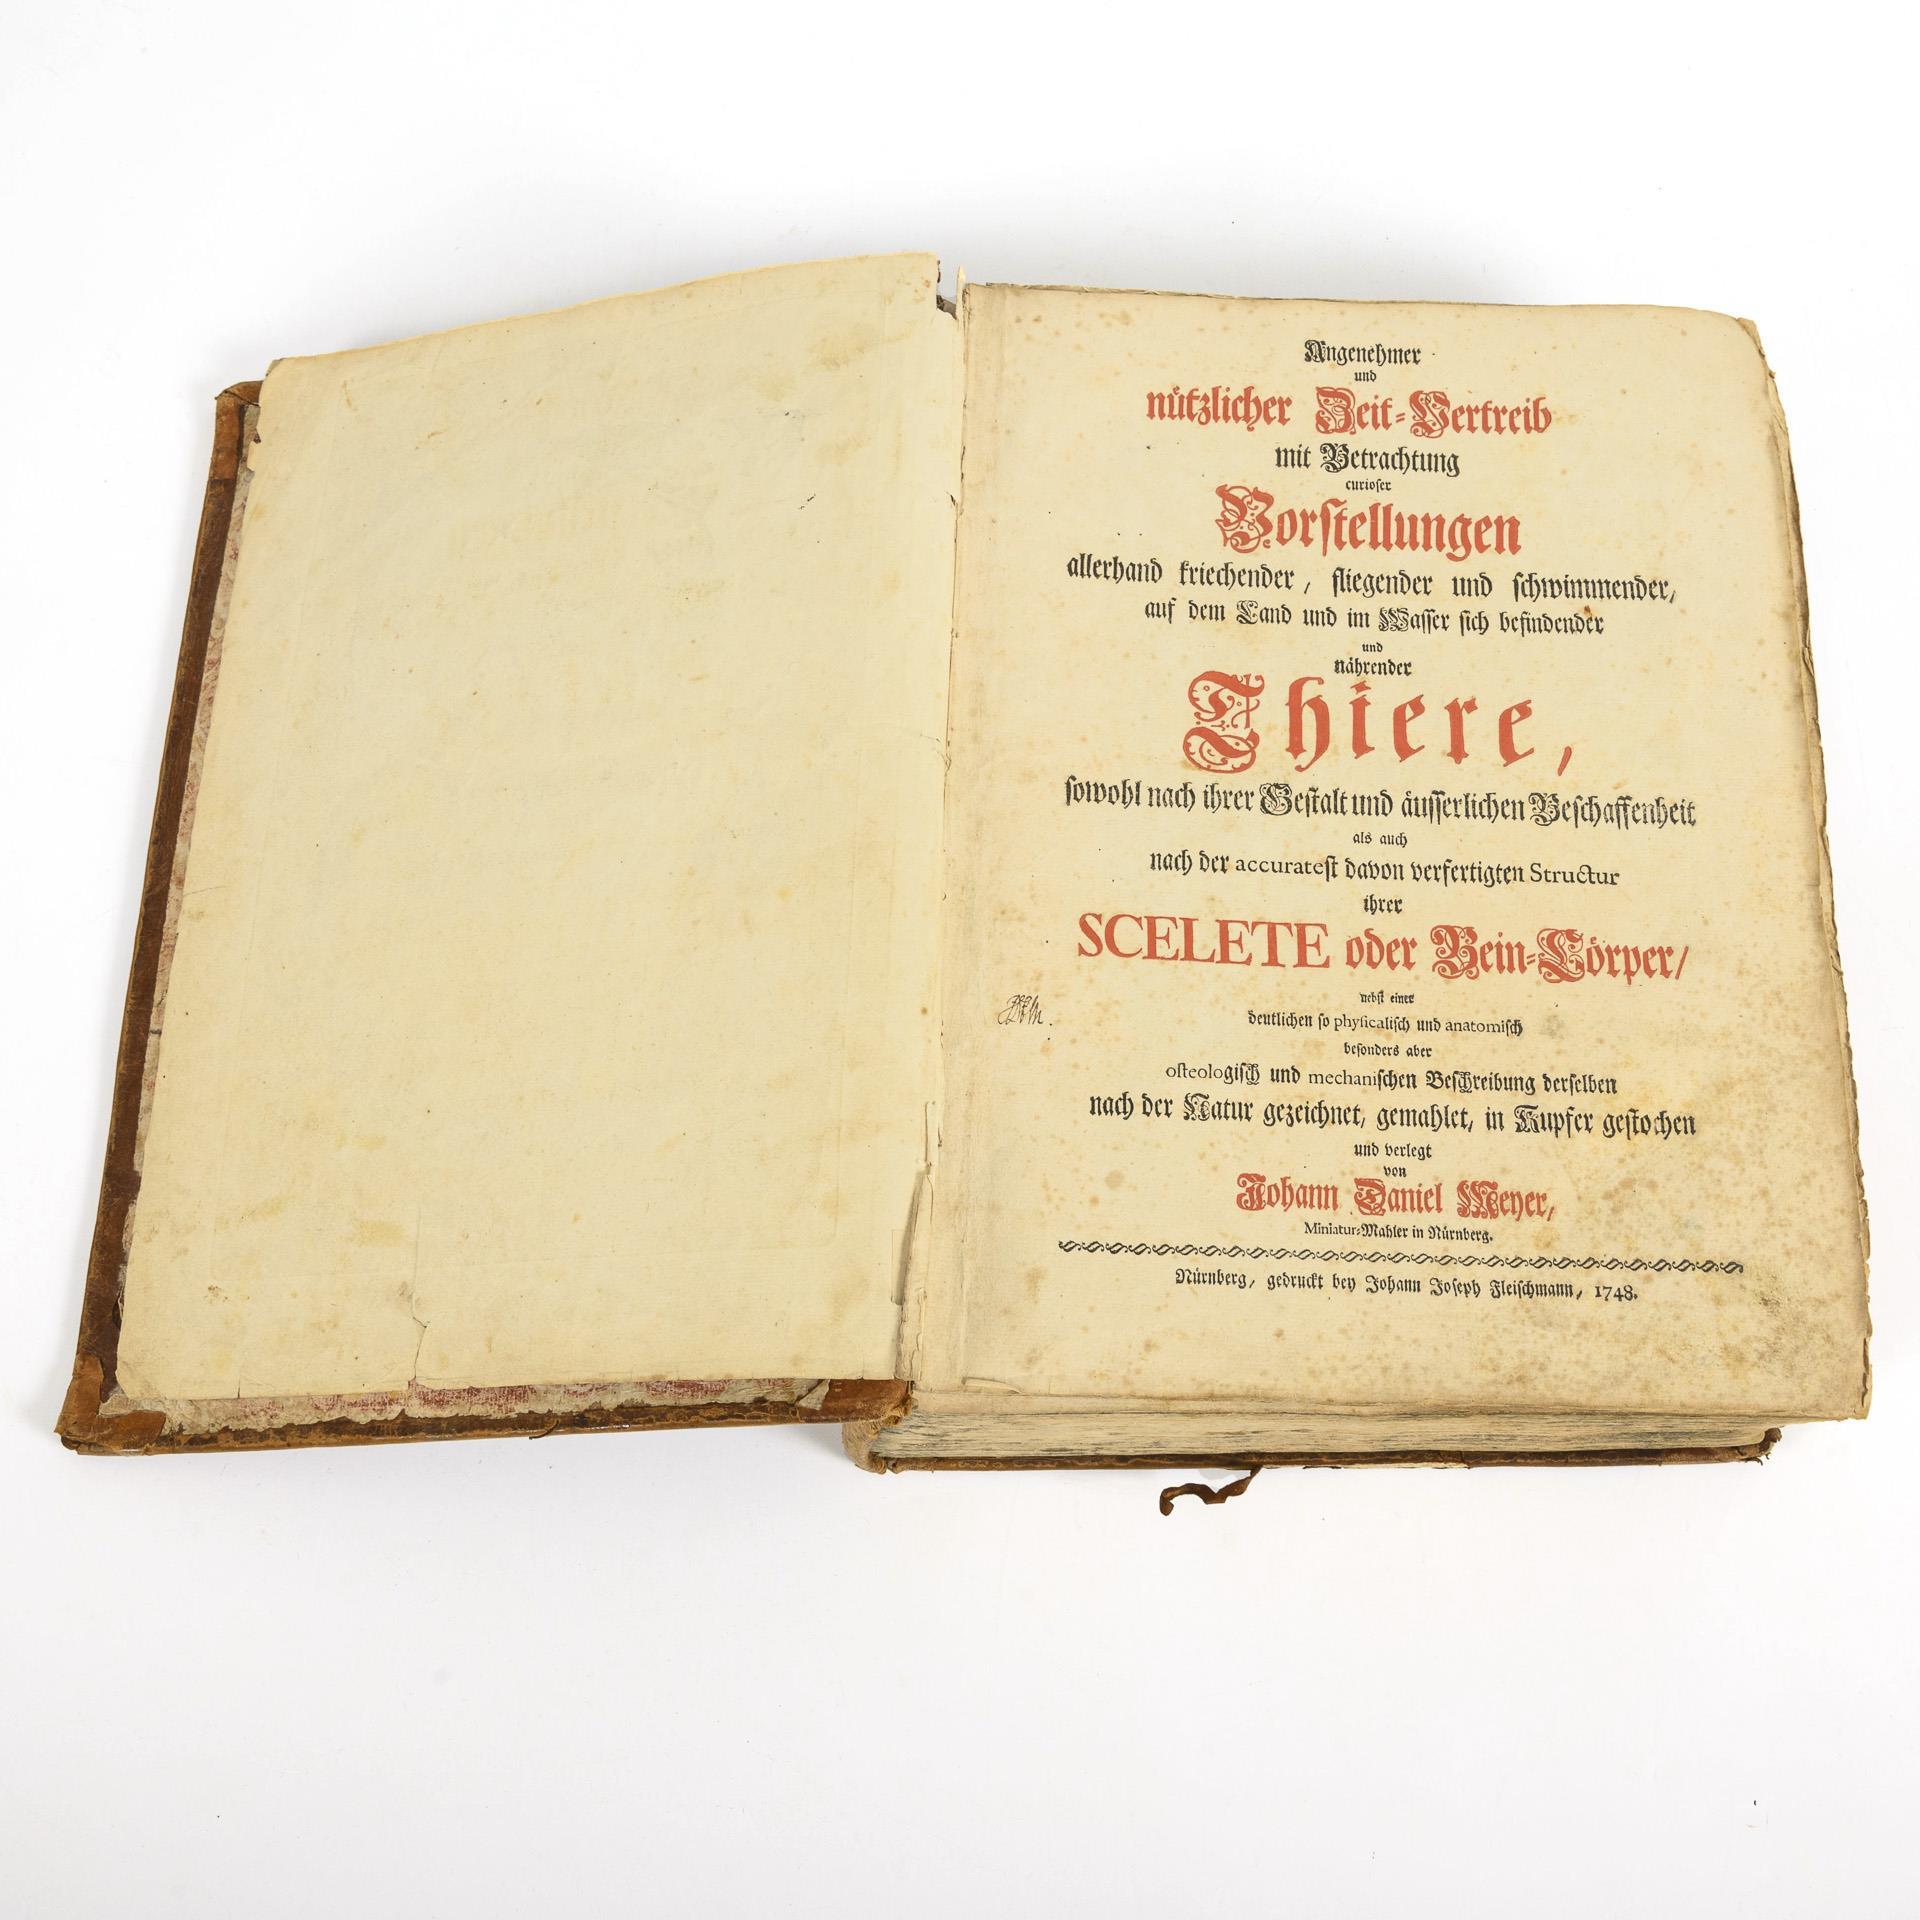 Angenehmer
und
nützlicher Zeit-Vertreib
mit Betrachtung
curioser
Vorstellungen
allerhand kriechender, fliegender und schwimmender,
auf dem Land und im Wasser sich befindender
und
nährender
Thiere,
sowohl nach ihrer Gestalt und äusserlichen Beschaffenheit
als auch
nach der accuratest davon verfertigten Structur
ihrer
SCELETE oder Bein-Cörper/
nebst einer
deutlichen so physicalisch und anatomisch
besonders aber
osteologisch und mechanischen Beschreibung derselben
nach der Natur gezeichnet, gemahlet, in Kupfer gestochen
und verlegt
von
Johann Daniel Meyer,
Miniatur-Mahler in Nürnberg.
Nürnberg, gedruckt bey Johann Joseph Fleischmann, 1748.